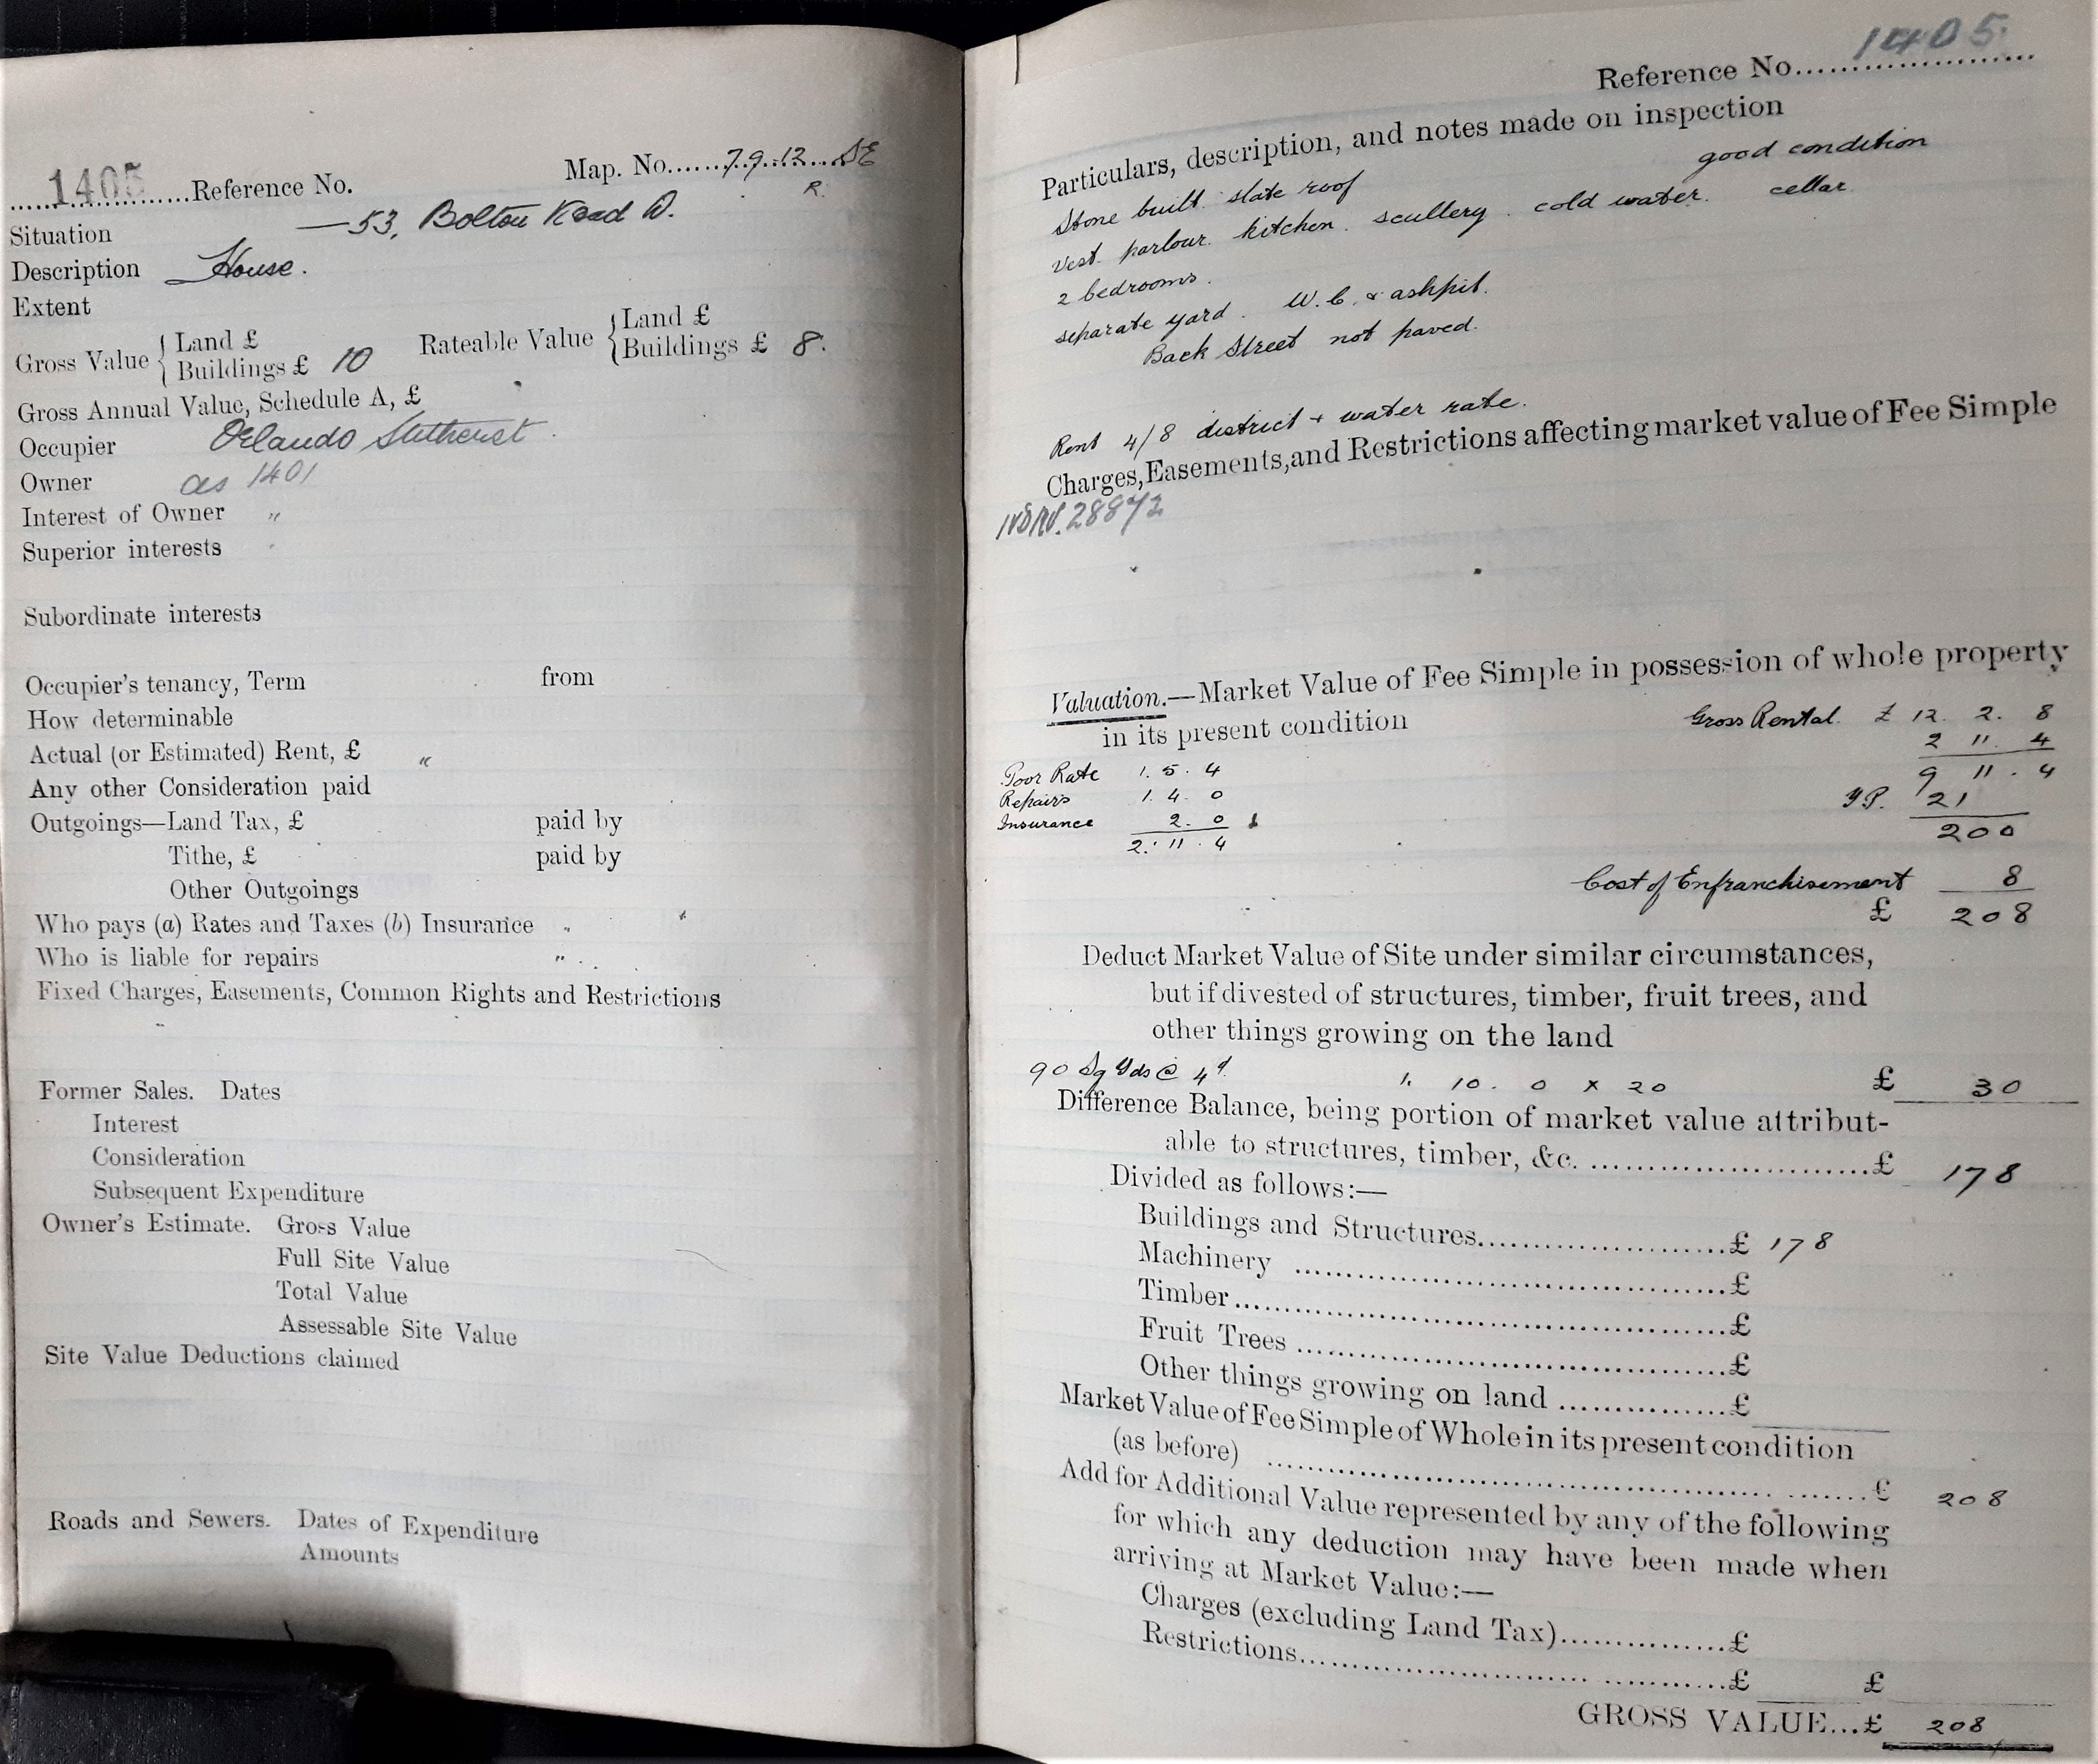 1405 Reference No. Map. No. 79.12 SE
R.
Situation — 53, Bolton Road D.
Description House.
Extent
Gross Value { Land £ Rateable Value { Land £
Buildings £ 10 Buildings £ 8.
Gross Annual Value, Schedule A, £
Occupier Orlando
Owner as 1401
Interest of Owner "
Superior interests
Subordinate interests
Occupier's tenancy, Term from
How determinable
Actual (or Estimated) Rent, £ "
Any other Consideration paid
Outgoings—Land Tax, £ paid by
Tithe, £ paid by
Other Outgoings
Who pays (a) Rates and Taxes (b) Insurance "
Who is liable for repairs "
Fixed Charges, Easements, Common Rights and Restrictions
Former Sales. Dates
Interest
Consideration
Subsequent Expenditure
Owner's Estimate. Gross Value
Full Site Value
Total Value
Assessable Site Value
Site Value Deductions claimed
Roads and Sewers. Dates of Expenditure
Amounts
Reference No. 1405.
Particulars, description, and notes made on inspection
Stone built slate roof good condition
Vest. parlour. kitchen. scullery. cold water. cellar.
2 bedrooms.
separate yard. W.C. & ashpit.
Back Street not paved.
Rent 4/8 district + water rate.
Charges, Easements, and Restrictions affecting market value of Fee Simple
28872
Valuation.—Market Value of Fee Simple in possession of whole property
in its present condition Gross Rental. £ 12. 2. 8
2 11. 4
Poor Rate 1. 5. 4 9 11. 4
Repairs 1. 4. 0 Y.P. 21
Insurance 2. 0 200
2. 11. 4
Cost of Enfranchisement 8
£ 208
Deduct Market Value of Site under similar circumstances,
but if divested of structures, timber, fruit trees, and
other things growing on the land
90 Sq Yds @ 4d. 1. 10. 0 x 20 £ 30
Difference Balance, being portion of market value attribut-
able to structures, timber, &c. £ 178
Divided as follows:—
Buildings and Structures £ 178
Machinery £
Timber £
Fruit Trees £
Other things growing on land £
Market Value of Fee Simple of Whole in its present condition
(as before) £ 208
Add for Additional Value represented by any of the following
for which any deduction may have been made when
arriving at Market Value:—
Charges (excluding Land Tax) £
Restrictions £ £
GROSS VALUE...£ 208